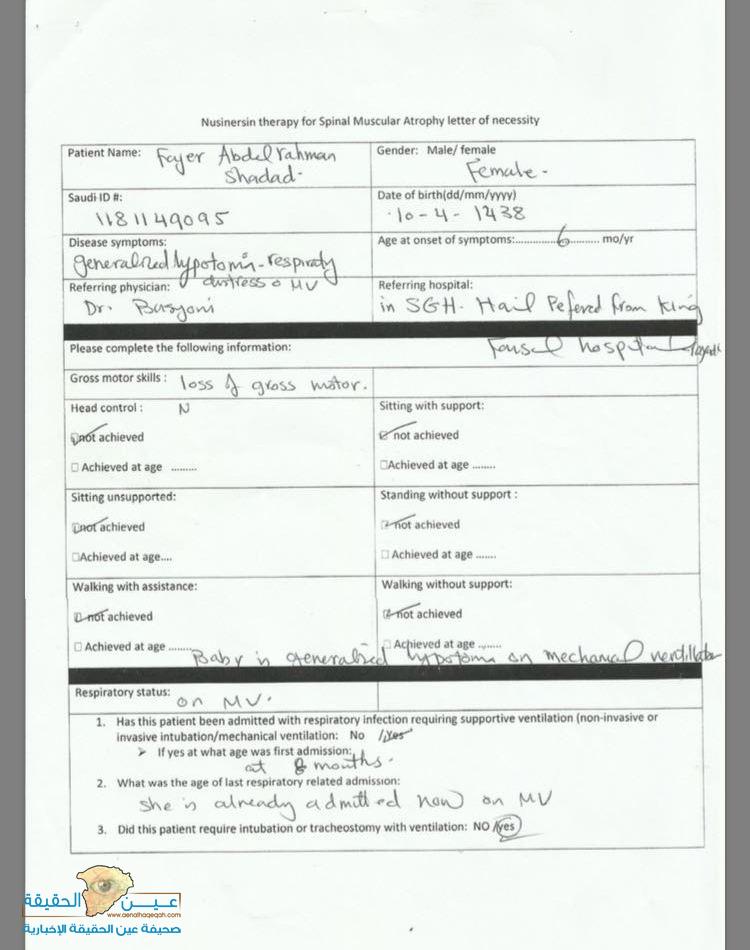 Nusinersin therapy for Spinal Muscular Atrophy letter of necessity
Patient Name: Fajer Abdelrahman
Shadad
Gender: Male/ female
Female -
Saudi ID #:
1181149095
Date of birth(dd/mm/yyyy)
10 - 4 - 1438
Disease symptoms:
generalized hypotomia - respiratry
distress on MV
Age at onset of symptoms:..............6.......... mo/yr
Referring physician:
Dr. Basyoni
Referring hospital:
in SGH - Hail Refered from King
Faisal hospital
Please complete the following information:
Gross motor skills : loss of gross motor.
Head control : N
not achieved
Achieved at age .........
Sitting with support:
not achieved
Achieved at age ........
Sitting unsupported:
not achieved
Achieved at age....
Standing without support :
not achieved
Achieved at age .......
Walking with assistance:
not achieved
Achieved at age ........
Walking without support:
not achieved
Achieved at age ........
Baby is generalized hypotomia on mechanical ventillator
Respiratory status: on MV.
1. Has this patient been admitted with respiratory infection requiring supportive ventilation (non-invasive or
invasive intubation/mechanical ventilation: No /Yes
➢ If yes at what age was first admission:
at 8 months.
2. What was the age of last respiratory related admission:
She is already admitted now on MV
3. Did this patient require intubation or tracheostomy with ventilation: NO /yes
عين الحقيقة
www.aenalhaqeqah.com
صحيفة عين الحقيقة الإخبارية